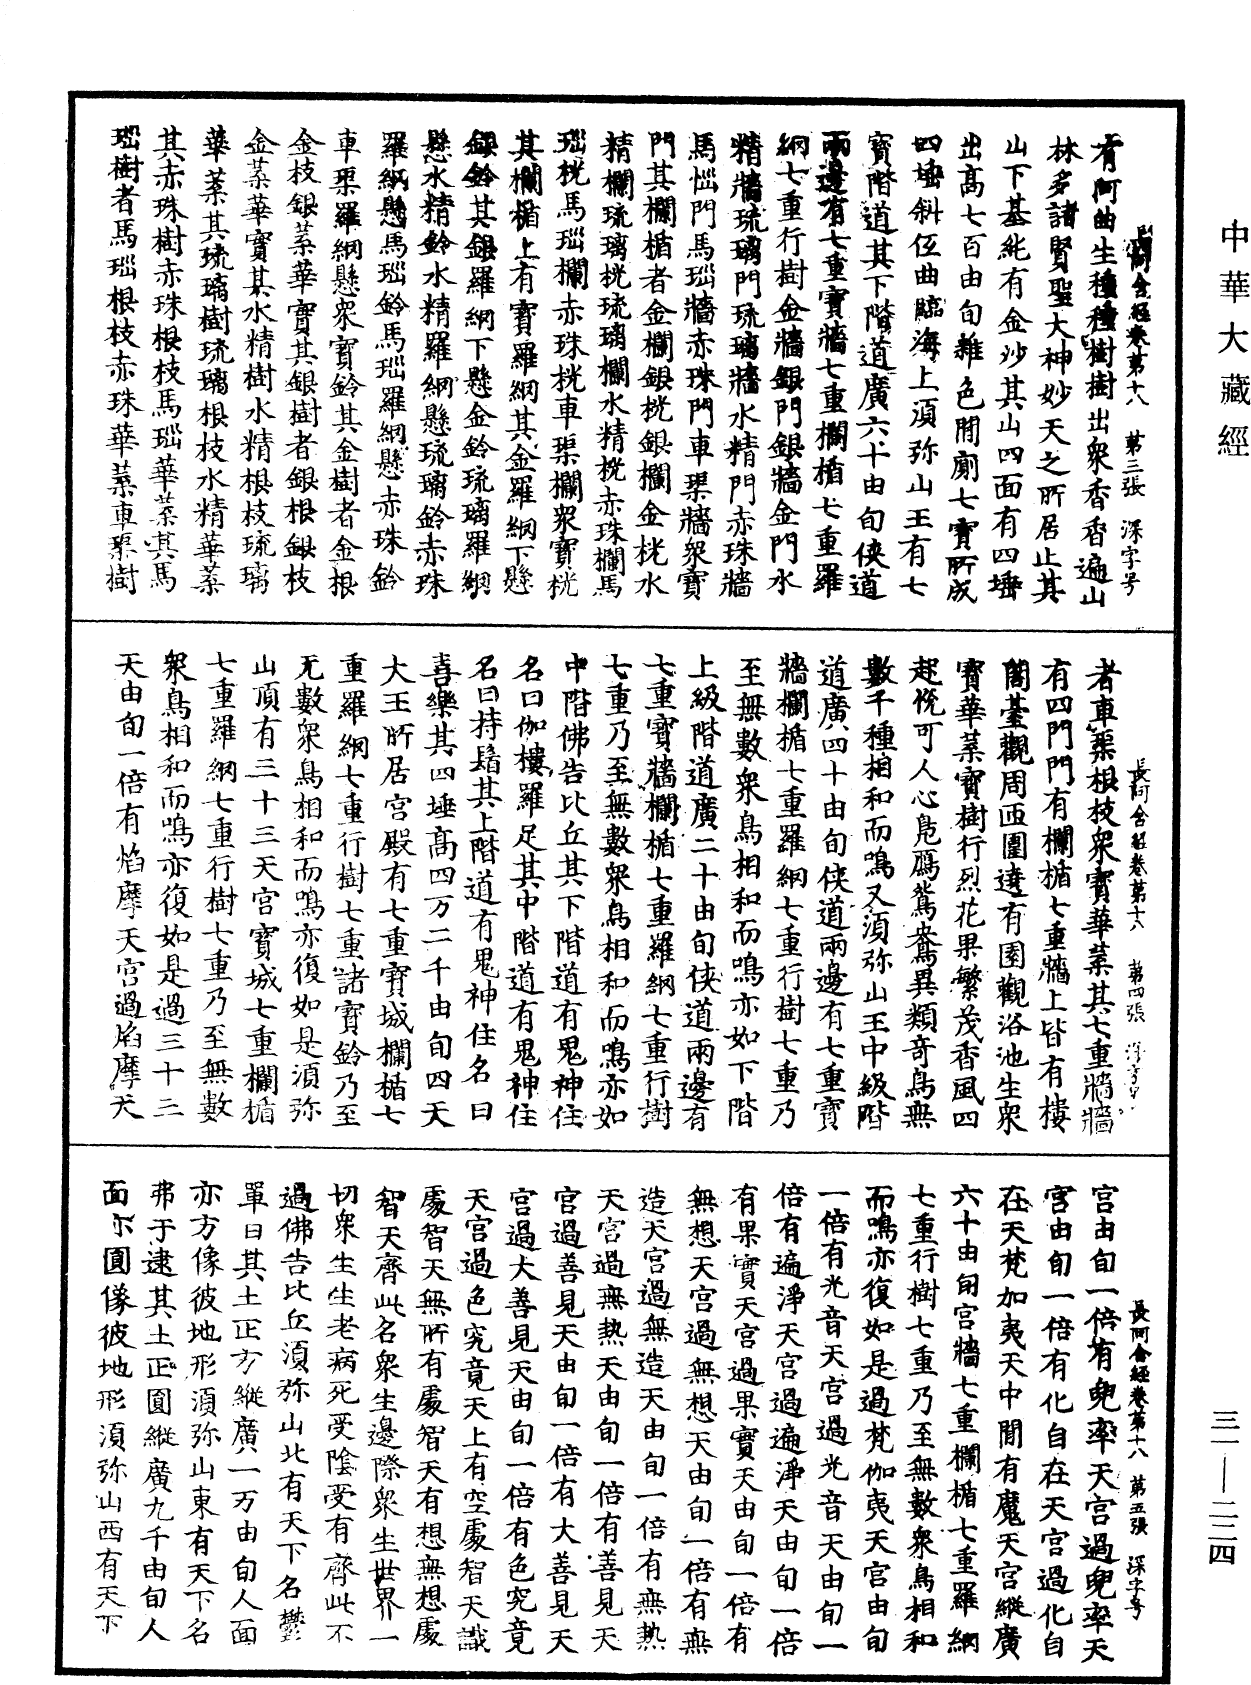 中華大藏經
長阿含經卷第十八 第三張 深字号
有阿曲生種種樹樹出衆香香遍山
林多諸賢聖大神妙天之所居止其
山下基純有金沙其山四面有四埵
出高七百由旬雜色間廁七寶所成
四埵斜伍曲臨海上湏弥山王有七
寶階道其下階道廣六十由旬侠道
兩邊有七重寶牆七重欄楯七重羅
網七重行樹金牆銀門銀牆金門水
精牆琉璃門琉璃牆水精門赤珠牆
馬𤦲門馬瑙牆赤珠門車𤦲牆衆寶
門其欄楯者金欄銀桄銀欄金桄水
精欄琉璃桄琉璃欄水精桄赤珠欄馬
瑙桄馬瑙欄赤珠桄車𤦲欄衆寶桄
其欄楯上有寶羅網其金羅網下懸
銀鈴其銀羅網下懸金鈴琉璃羅網
懸水精鈴水精羅網懸琉璃鈴赤珠
羅網懸馬瑙鈴馬瑙羅網懸赤珠鈴
車渠羅網懸衆寶鈴其金樹者金根
金枝銀葉華實其銀樹者銀根銀枝
金葉華實其水精樹水精根枝琉璃
華葉其琉璃樹琉璃根枝水精華葉
其赤珠樹赤珠根枝馬瑙華葉其馬
瑙樹者馬瑙根枝赤珠華葉車渠樹
長阿含經卷第十八 第四張
者車渠根枝衆寶華葉其七重牆牆
有四門門有欄楯七重牆上皆有樓
閣臺觀周匝圍遶有園觀浴池生衆
寶華葉寶樹行烈花果繁茂香風四
起恱可人心鳧鴈鴛鴦異類奇鳥無
數千種相和而鳴又湏弥山王中級階
道廣四十由旬侠道兩邊有七重寶
牆欄楯七重羅網七重行樹七重乃
至無數衆鳥相和而鳴亦如下階
上級階道廣二十由旬侠道兩邊有
七重寶牆欄楯七重羅網七重行樹
七重乃至無數衆鳥相和而鳴亦如
中階佛告比丘其下階道有鬼神住
名曰伽樓羅足其中階道有鬼神住
名曰持鬘其上階道有鬼神住名曰
喜樂其四埵高四万二千由旬四天
大王所居宮殿有七重寶城欄楯七
重羅網七重行樹七重諸寶鈴乃至
无數衆鳥相和而鳴亦復如是湏弥
山頂有三十三天宮寶城七重欄楯
七重羅網七重行樹七重乃至無數
衆鳥相和而鳴亦復如是過三十三
天由旬一倍有焰摩天宮過焰摩天
長阿含經卷第十八 第五張 深字号
宮由旬一倍有兜率天宮過兜率天
宮由旬一倍有化自在天宮過化自
在天梵加夷天中間有魔天宮縱廣
六十由旬宮牆七重欄楯七重羅網
七重行樹七重乃至無數衆鳥相和
而鳴亦復如是過梵伽夷天宮由旬
一倍有光音天宮過光音天由旬一
倍有遍淨天宮過遍淨天由旬一倍
有果實天宮過果實天由旬一倍有
無想天宮過無想天由旬一倍有無
造天宮過無造天由旬一倍有無熱
天宮過無熱天由旬一倍有善見天
宮過善見天由旬一倍有大善見天
宮過大善見天由旬一倍有色究竟
天宮過色究竟天上有空處智天識
處智天無所有處智天有想無想處
智天齊此名衆生邊際衆生世界一
切衆生生老病死受陰受有齊此不
過佛告比丘湏弥山北有天下名欝
單曰其土正方縱廣一万由旬人面
亦方像彼地形湏弥山東有天下名
弗于逮其土正圓縱廣九千由旬人
面亦圓像彼地形湏弥山西有天下
三一—二二四